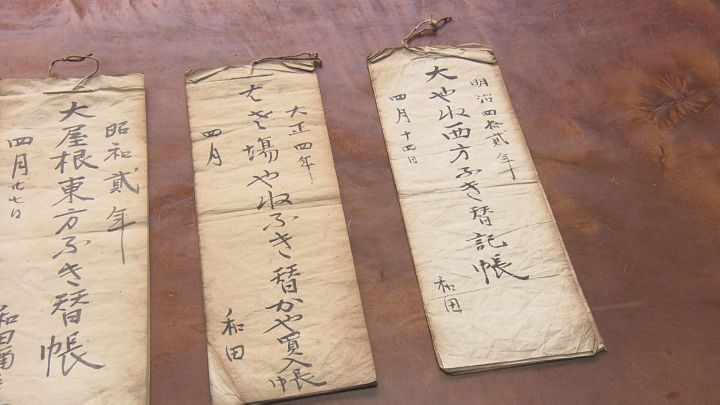 明治四拾貳年
大やね西方ふき替記帳
四月十四日
和田
大正四年
場やねふき替かや買入帳
四月
和田
昭和貳年
大屋根東方ふき替帳
四月廿七日
和田